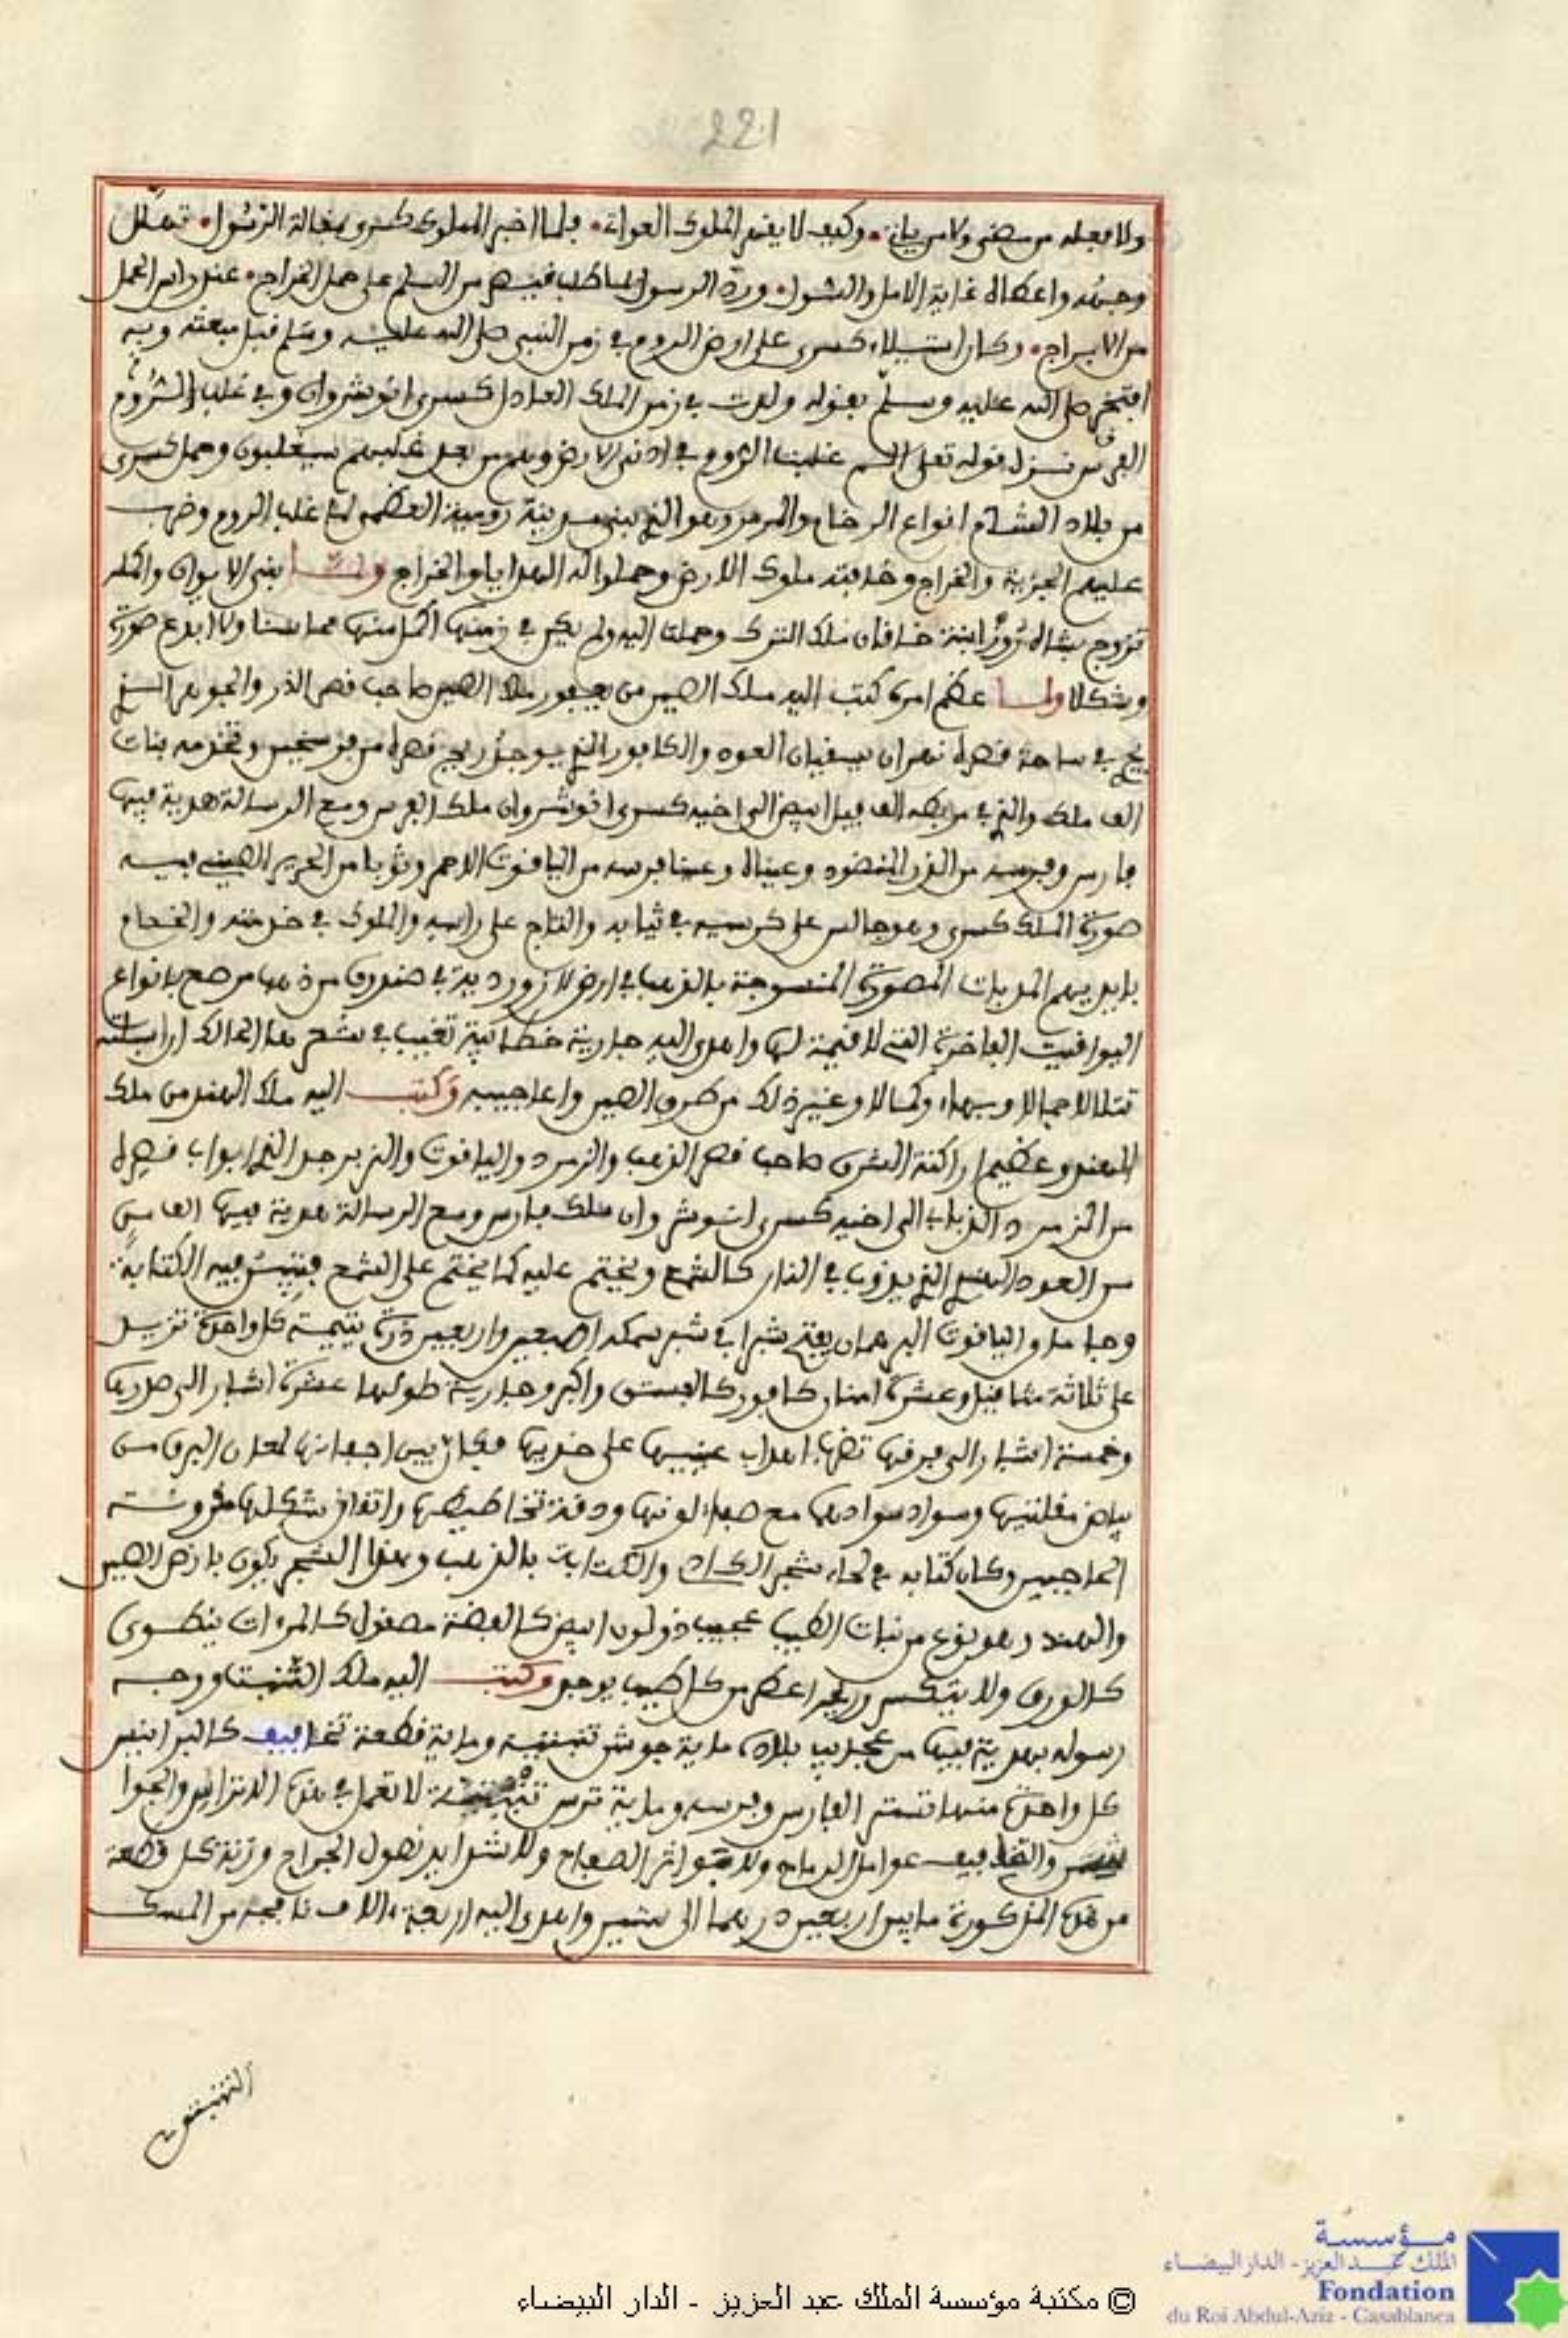 221
ولا فعله من سعى ولا من يأتي وكيف لا يفهم الملوك العوات فلما اخبر المملوك كسرى بمقالة الرسول تهلل
وجهه واعطاه غاية الامل والسول ورد الرسول لما طلب قيصر من السلم على حمل الخراج
من الابراج وكان استيلاء كسرى على ارض الروم في زمن النبي صلى الله عليه وسلم قبل مبعثه وبه
افتخر صلى الله عليه وسلم بقوله ولدت في زمن الملك العادل كسرى انوشروان وفي غلب الروم
الفرس نزل قوله تعلى الم غلبت الروم في ادنى الارض وهم من بعد غلبهم سيغلبون وحمل كسرى
من بلاد الشام انواع الرخام والمرمر وهو الذي بنى مدينة رومية العظمى لما غلب الروم وضرب
عليهم الجزية والخراج وهادنته ملوك الارض وحملوا له الهدايا والخراج ولما بنى الايوان واكمله
تزوج بشاه روز ابنة خاقان ملك الترك وحملت اليه ولم يكن في زمنها اكمل منها محاسنا ولا ابدع صورة
وشكلا ولما عظم امره كتب اليه ملك الصين من يعبور ملك الصين صاحب قصر الدر والجوهر الذي
يجري في ساحة قصره نهران يسقيان العود والكافور الذي يوجد ريح قصره من فرسخين وتخدمه بنات
الف ملك والذي في مربطه الف فيل ابيض الى اخيه كسرى انوشروان ملك الفرس ومع الرسالة هدية فيها
فارس وفرسه من الدر المنضود وعيناه وعينا فرسه من الياقوت الاحمر وثوبا من الحرير الصيني فيه
صورة الملك كسرى وهو جالس على كرسيه في ثيابه والتاج على راسه والملوك في خدمته والخدام
بايديهم المذبات المصورة المنسوجة بالذهب في ارض لازوردية في صندوق من ذهب مرصع بانواع
اليواقيت الفاخرة التي لا قيمة لها واهدى اليه جارية خطائية تغيب في شعرها الحالك اذا اسبلته
تتلالا جمالا وبهاء وكمالا وغير ذلك من طرف الصين واعاجيبه وكتب اليه ملك الهند من ملك
الهند وعظيم اراكنة الشرق صاحب قصر الذهب والزمرد والياقوت والزبرجد الذي ابواب قصره
من الزمرد الذبابي الى اخيه كسرى انوشروان ملك فارس ومع الرسالة هدية فيها الف من
من العود الهندي الذي يذوب في النار كالشمع ويختم عليه كما يختم على الشمع فتبين فيه الكتابة
وجاما من الياقوت البهرمان يفتح شبرا في شبر سمكه اصبعين واربعين درة يتيمة كل واحدة تزيد
على ثلاثة مثاقيل وعشرة امنان كافور كالفستق واكبر وجارية طولها عشرة اشبار الى صدرها
وخمسة اشبار الى فرقها تضرب اهداب عينيها على خديها فكان بين اجفانها لمعان البرق من
بياض مقلتيها وسواد سوادها مع صفاء لونها ودقة تخاطيطها واتقان شكلها مقرونة
الحاجبين وكان كتابه في لحاء شجر الكادي والكتابات بالذهب وهذا الشجر يكون بارض الصين
والهند وهو نوع من نبات الطيب عجيب ذو لون ابيض كالفضة مصقول كالمرءات ينطوي
كالورق ولا يتكسر وريحه اعطر من كل طيب يوجد وكتب اليه ملك التبت ووجه
رسوله بهدية فيها من عجايب بلاده ماية جوشن تبتية وماية قطعة تجافيف كالبرانيس
كل واحدة منها تستر الفارس وفرسه وماية ترس تبتية لا تعمل في هذه التراس والجوا
شن والتجافيف عوامل الرماح ولا بواتر الصفاح ولا شدايد نصول الجراح وزنة كل قطعة
من هذه المذكورة ما بين اربعين درهما الى ستين واهدى اليه اربعة الاف نافجة من المسك
التبتي
© مكتبة مؤسسة الملك عبد العزيز - الدار البيضاء
مؤسسة
الملك عبد العزيز - الدار البيضاء
Fondation
du Roi Abdul-Aziz - Casablanca